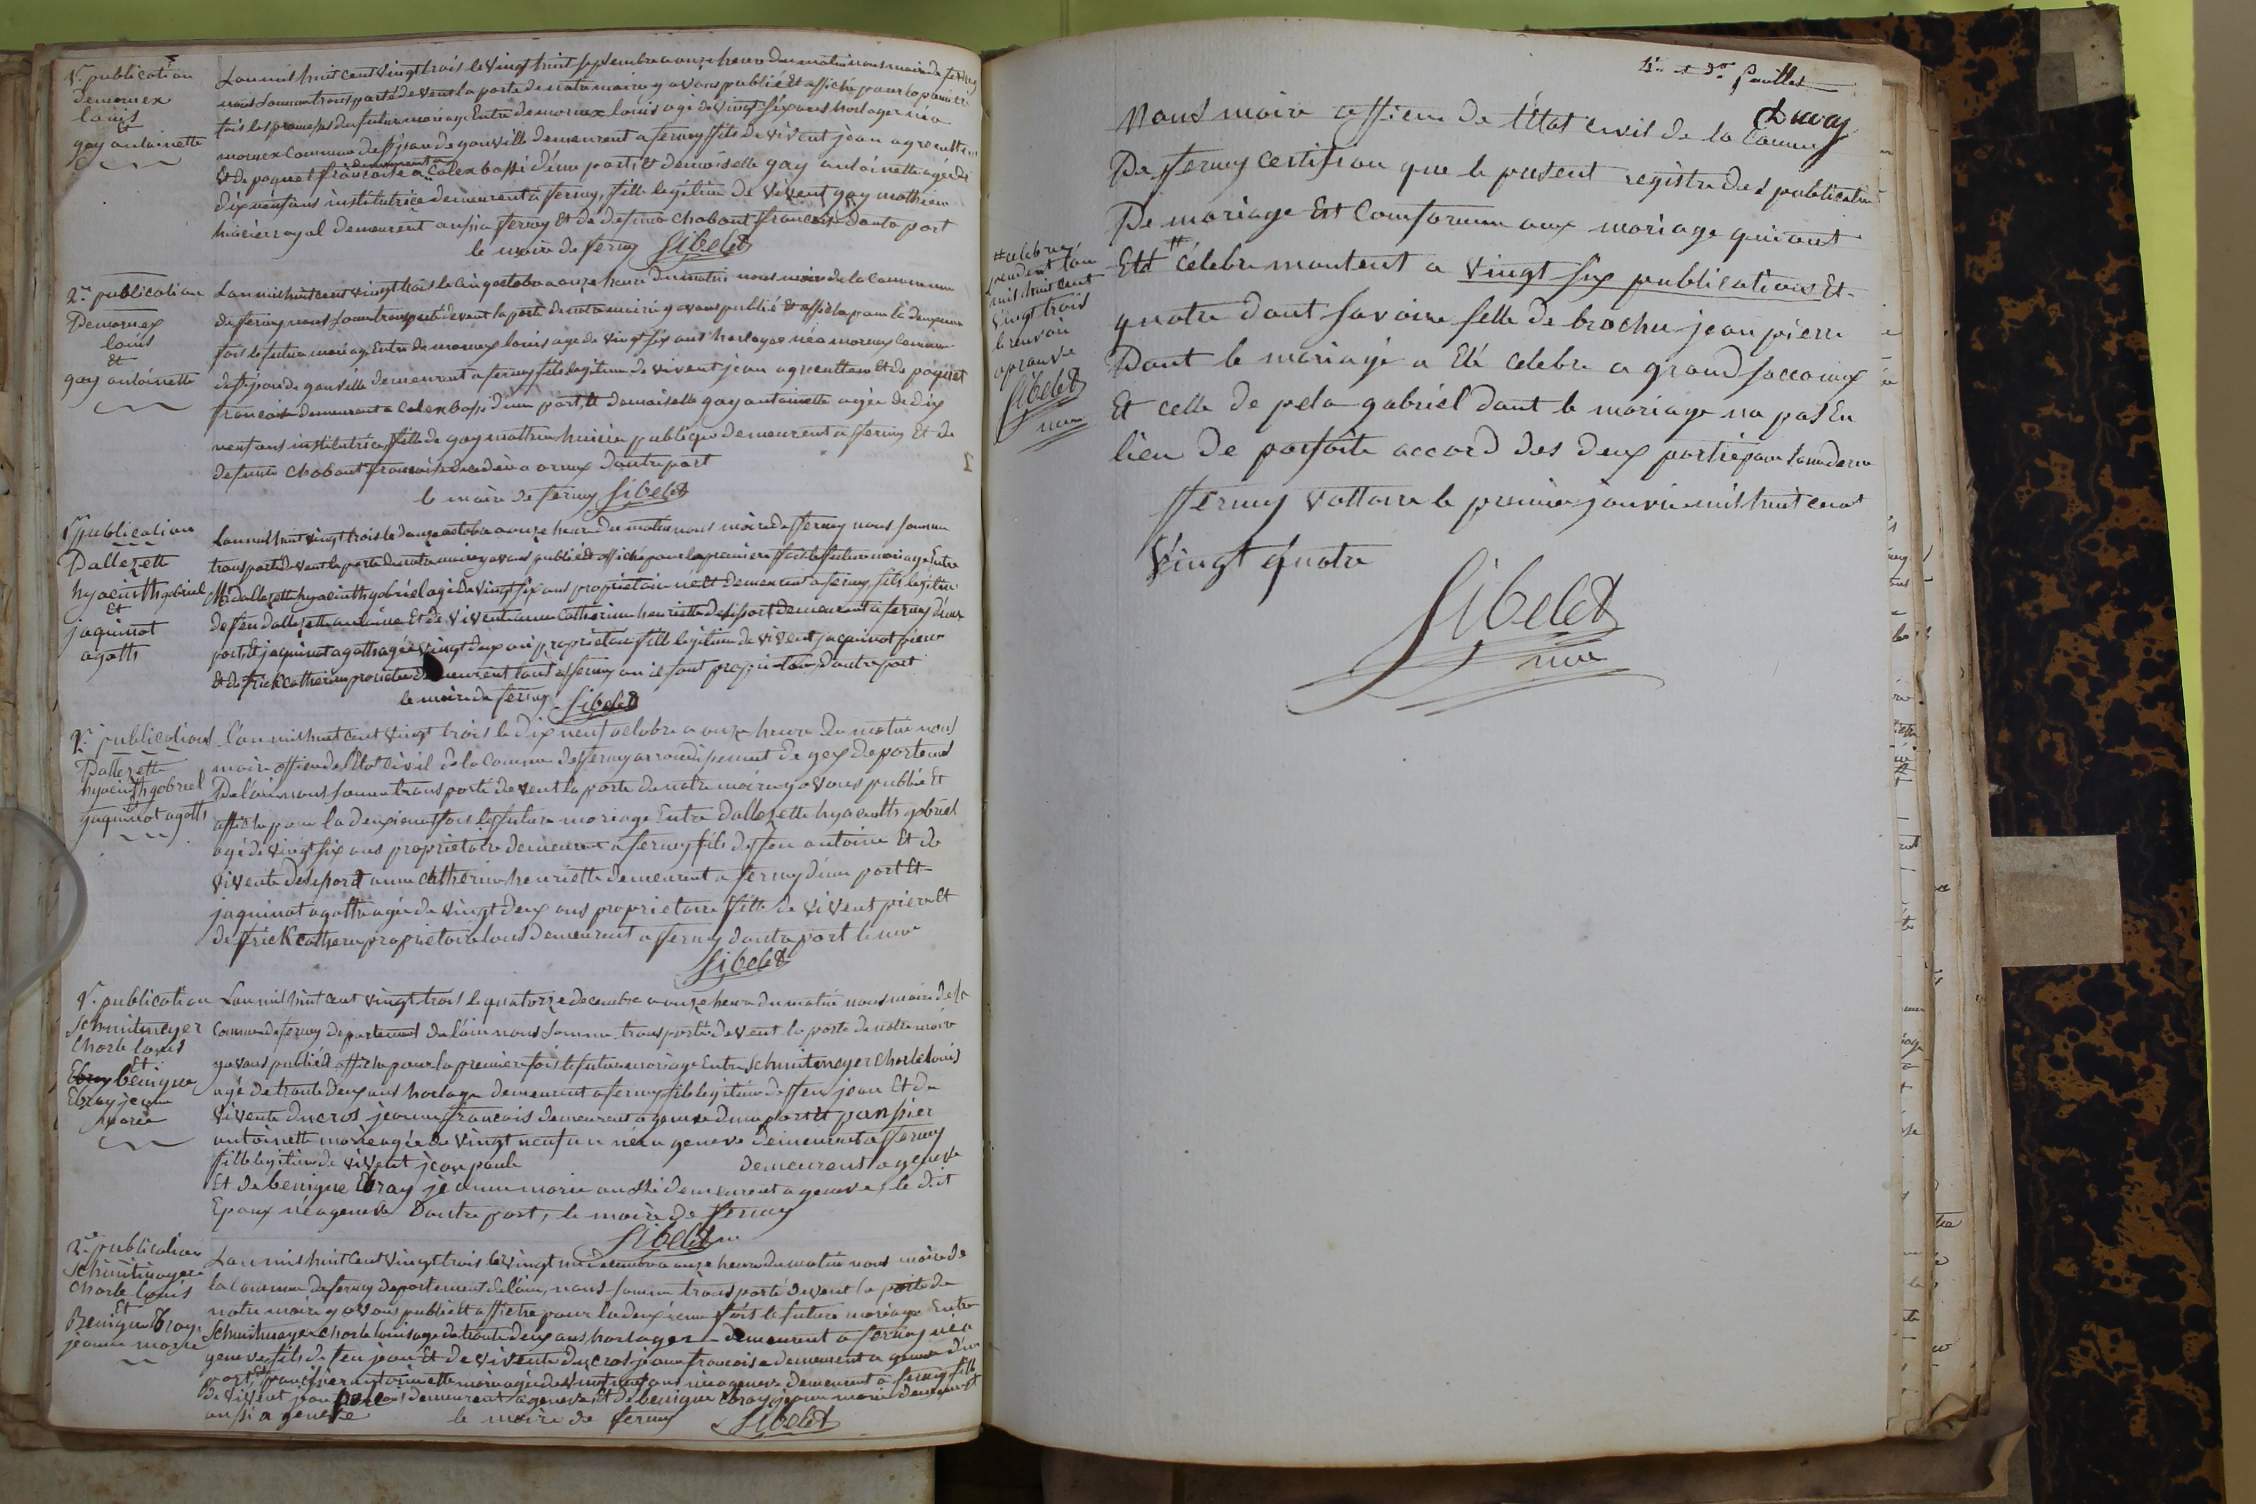 1re publication
demornex
louis
Et
gay antoinette
Lan mil huit cent vingt trois le vingt huit septembre a onze heure du matin nous maire de ferney
nous somme transporté devent la porte de notre mairie y avons publié Et affiché pour la premiere
fois les promesses du futur mariage Entre demornex louis agé de vingt six ans horloger né a
mornex Commune de St jean de gonville demeurent a ferney fils de vivent jean agreculteur
Et de poquet francoise demeurent a Colex bossi d'une part, Et demoiselle gay antoinette agée de
dix neuf ans institutrice demeurent a ferney, fille legitime de vivent gay mathieu
huisier royal demeurent aussi a ferney Et de defunte chabout francoise dautre part
le maire de ferney Sibelet
2e publication
Demornex
louis
Et
gay antoinette
Lan mil huit cent vingt trois le cinq octobre a onze heure du matin nous maire de la Commune
de ferney nous somme transporté devent la porte de notre mairie y avons publié Et affiché pour la deuxieme
fois le futur mariage Entre demornex louis age de vingt six ans horloger né a mornex Commune
de St jean de gonville demeurent a ferney fils legitime de vivent jean agreculteur Et de poquet
francoise demeurent a Colex bossi d'une part, Et demoiselle gay antoinette agée de dix
neuf ans institutrice fille de gay mathieu huisier publique demeurent a ferney Et de
defunte chabout francoise decedée a ornex dautre part
le maire de ferney Sibelet
1re publication
Dallezette
hyacinth gabriel
Et
jaquinot
agatte
Lan mil huit vingt trois le douze octobre a onze heure du matin nous maire de fferney nous somme
transporté devent la porte de notre mairie y avons publié Et affiché pour la premiere fois le futur mariage Entre
Mr dallezette hyacinth gabriel agé de vingt six ans propriétaire né Et demeurent a ferney fils legitime
de feu dallezette antoine Et de vivente anne Catherine henriette desport demeurent a ferney d'une
part, Et jaquinot agatte agée vingt deux ans propriétaire fille legitime de vivent jaquinot pierre
Et de frick catherine demeurent tous a fferney ou ils sont propriétaire dautre part
le maire de ferney Sibelet
2e publications
Dallezette
hyacinth gabriel
Et
jaquinot agatte
l'an mil huit cent vingt trois le dix neuf octobre a onze heure du matin nous
maire officier de l'Etat civil de la Commune de fferney arrondisement de gex departement
De l'ain nous somme transporté devent la porte de notre mairie y avons publiée Et
affiché pour la deuxieme fois le future mariage Entre dallezette hyacinth gabriel
agé de vingt six ans proprietaire demeurent a ferney fils de ffeu antoine Et de
vivente desport anne Catherine henriette demeurent a ferney d'une part Et
jaquinot agatte agée de vingt deux ans proprietaire fille de vivent pierre Et
de frick catherine proprietaire tous demeurent a fferney dautre part le maire
Sibelet
1re publication
Schmitmeyer
Charle louis
Et
Ebray benigne
Ebray jeanne
marie
Lan mil huit cent vingt trois le quatorze decembre a onze heure du matin nous maire de la
Commune de ferney departement de l'ain nous somme transporté devent la porte de notre mairie
y avons publié Et affiché pour la premiere fois le future mariage Entre Schmitmeyer Charle louis
agé de trente deux ans horloger demeurent a ferney fils legitime de ffeu jean Et de
vivente ducros jeanne francoise demeurent a geneve d'une part Et pansier
antoinette marie agée de vingt neuf an née a geneve demeurent a fferney
fille legitime de vivent jean paule demeurent a geneve
Et de benigne Ebray jeanne marie aussi demeurent a geneve, le dit
Epoux né a geneve Dautre part, le maire de fferney
Sibelet
2e publication
Schmitmeyer
Charle louis
Et
Benigne Ebray
jeanne marie
Lan mil huit Cent vingt trois le vingt un decembre a onze heure du matin nous maire de
la Commune de ferney departement de l'ain, nous somme transporté devent la porte de
notre mairie y avons publié Et affiché pour la deuxieme fois le future mariage Entre
Schmitmeyer charle louis age de trente deux ans horloger demeurent a ferney né a
geneve fils de feu jean Et de vivente ducros jeanne francoise demeurent a geneve d'une
part, Et pansier antoinette marie agée de vingt neuf ans née a geneve demeurent a ferney fille
de vivent jean demeurent a geneve, Et de benigne Ebray jeanne marie demeurent
aussi a geneve le maire de ferney Sibelet
4e et der feuillet
Duvay
Nous maire officier de l'État civil de la Commune
De fferney certifion que le present registre des publication
De mariage Est Comforme aux mariage qui ont
Eté # célebre montent a vingt six publications Et
quatre dont savoire selle de brochu jean pierre
Dont le mariage a Eté celebre a grand saconnex
Et celle de pela gabriel dont le mariage na pas Eu
lieu de parfaite accord des deux partie
fferney voltaire le premier janvier mil huit cent
vingt quatre
Sibelet
mre
# celebre
pendent lan
mil huit cent
vingt trois
le renvoi
aprouvé
Sibelet
mre